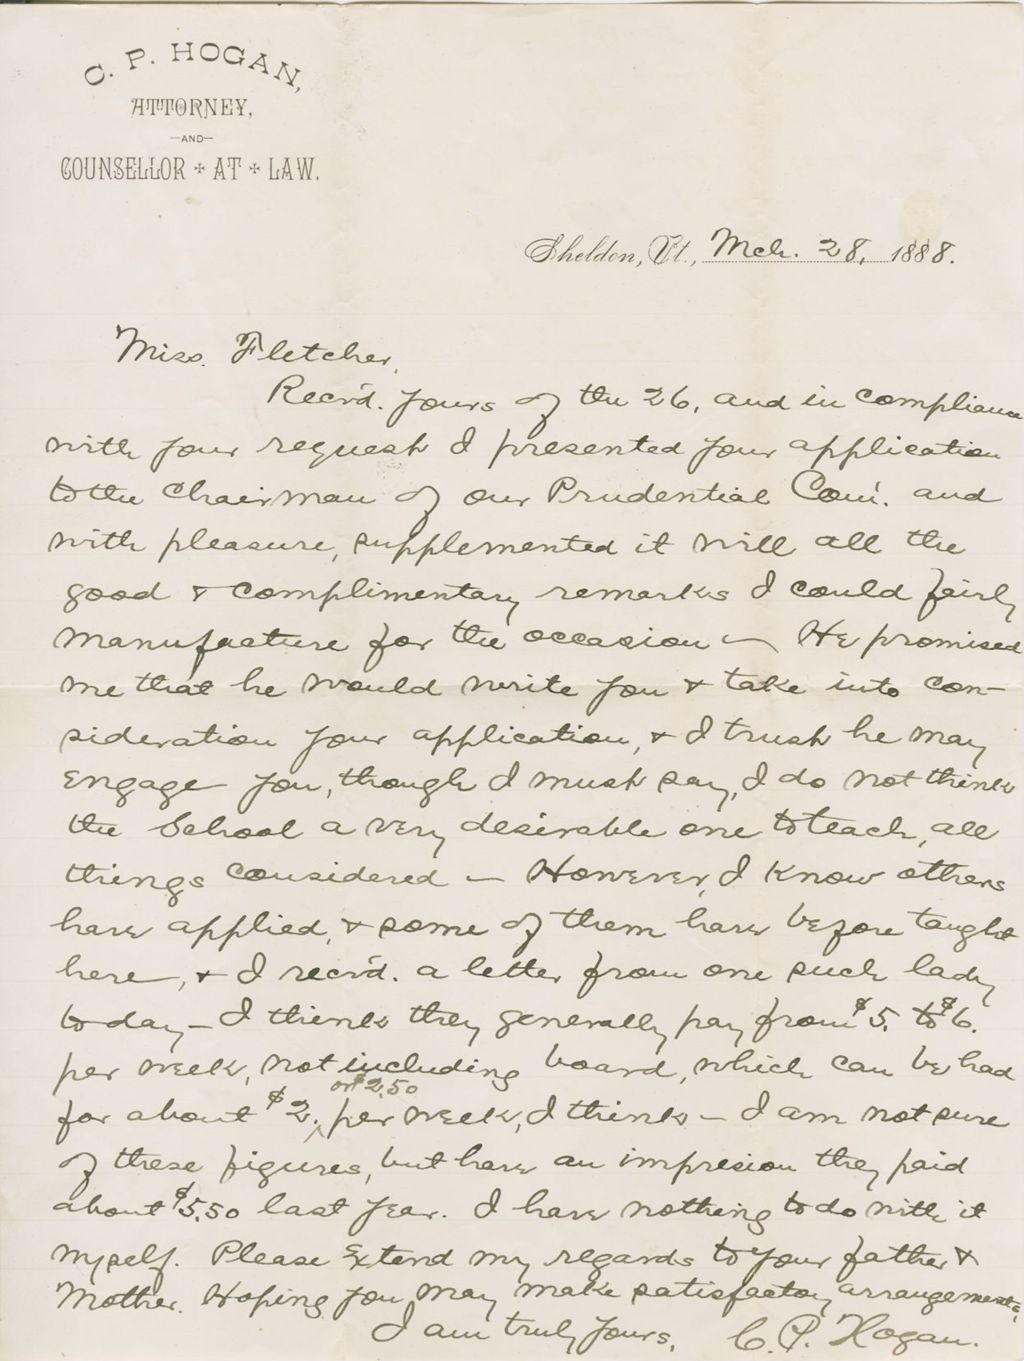 C. P. HOGAN,
ATTORNEY,
—AND—
COUNSELLOR + AT + LAW.
Sheldon, Vt., Mch. 28, 1888.
Miss. Fletcher,
Rec'd. yours of the 26, and in compliance
with your request I presented your application
to the Chairman of our Prudential Com'. and
with pleasure, supplemented it with all the
good & complimentary remarks I could fairly
manufacture for the occasion — He promised
me that he would write you & take into con-
sideration your application, & I trust he may
engage you, though I must say, I do not think
the School a very desirable one to teach, all
things considered — However, I know others
have applied, & some of them have before taught
here, & I rec'd. a letter from one such lady
to day — I think they generally pay from $5. to $6.
per week, not including board, which can be had
or $2.50
for about $2. per week, I think — I am not sure
of these figures, but have an impresion they paid
about $5.50 last year. I have nothing to do with it
myself. Please extend my regards to your father &
Mother. Hoping you may make satisfactory arrangements,
I am truly yours, C. P. Hogan.